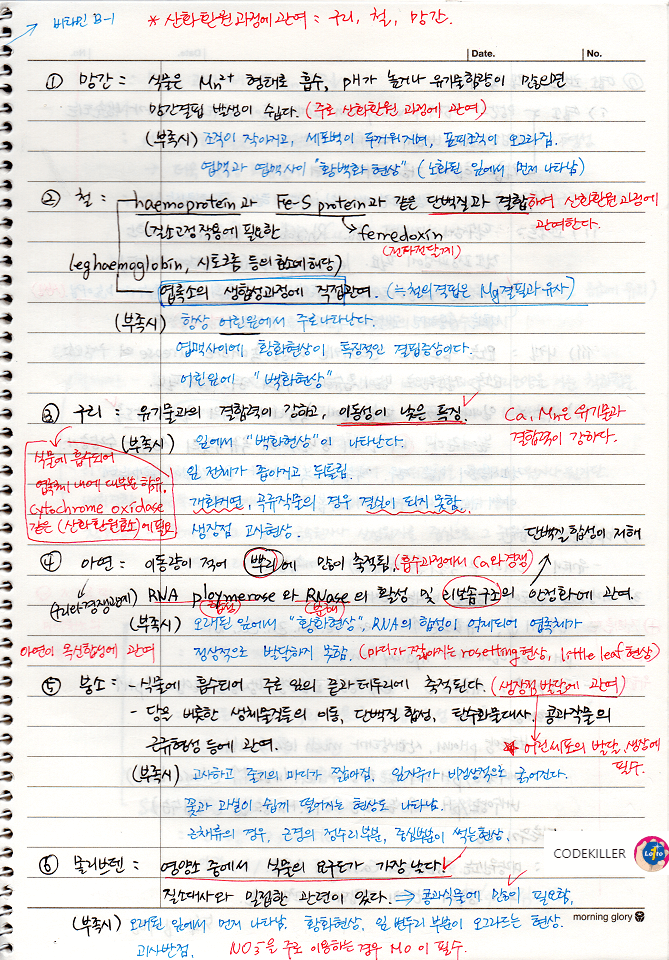 비타민 B-1
* 산화환원과정에 관여 : 구리, 철, 망간.
Date.
No.
① 망간 : 식물은 Mn²⁺ 형태로 흡수, pH가 높거나 유기물함량이 많으면
망간결핍 발생이 쉽다. (주로 산화환원 과정에 관여)
(부족시) 조직이 작아지고, 세포벽이 두꺼워지며, 표피조직이 오그라짐.
엽맥과 엽맥사이 "황백화 현상" (노화된 잎에서 먼저 나타남)
② 철 : haemoprotein과 Fe-S protein과 같은 단백질과 결합하여 산화환원 과정에
관여한다.
(질소고정작용에 필요한
ferredoxin
(전자전달계)
leghaemoglobin, 시토크롬 등의 합성에 해당)
엽록소의 생합성과정에 직접관여. (≒철의 결핍은 Mg결핍과 유사)
(부족시) 항상 어린잎에서 주로나타난다.
엽맥사이에 황화현상이 특징적인 결핍증상이다.
어린잎에 "백화현상"
③ 구리 : 유기물과의 결합력이 강하고, 이동성이 낮은 특징.
Ca, Mn은 유기물과
결합력이 강하다.
(부족시) 잎에서 "백화현상"이 나타난다.
식물에 흡수되어
엽록체 내에 대부분 함유,
Cytochrome oxidase
같은 (산화환원효소)에 필요
잎 전체가 좁아지고 뒤틀림.
개화커면, 곡류작물의 경우 결실이 되지 못함.
생장점 고사현상.
단백질 합성이 저해
④ 아연 : 이동량이 적어 뿌리에 많이 축적됨, (흡수과정에서 Ca와 경쟁)
(구리와 경쟁관계)
RNA ploymerase와 RNase의 활성 및 리보솜구조의 안정화에 관여.
(합성)
(분해)
(부족시) 오래된 잎에서 "황화현상", RNA의 합성이 억제되어 엽록체가
아연이 옥신합성에 관여
정상적으로 발달하지 못함. (마디가 짧아지는 rosetting현상, little leaf 현상)
⑤ 붕소 : - 식물에 흡수되어 주로 잎의 끝과 테두리에 축적된다. (생장점 발달에 관여)
- 당을 비롯한 생체물질들의 이동, 단백질 합성, 탄수화물대사, 콩과작물의
근류형성 등에 관여.
* 어린세포의 발달, 생장에
필수.
(부족시) 고사하고 줄기의 마디가 짧아짐. 잎자루가 비정상적으로 굵어진다.
꽃과 과실이 쉽게 떨어지는 현상도 나타남.
근채류의 경우, 근경의 정수리부분, 중심부분이 썩는현상.
CODEKILLER
Lotto
⑥ 몰리브덴 : 영양소 중에서 식물의 요구도가 가장 낮다!
질소대사와 밀접한 관련이 있다. ⇒ 콩과식물에 많이 필요함,
(부족시) 오래된 잎에서 먼저 나타남. 황화현상, 잎 변두리 부분이 오그라드는 현상.
morning glory
괴사반점,
NO₃⁻을 주로 이용하는 경우 Mo이 필수.